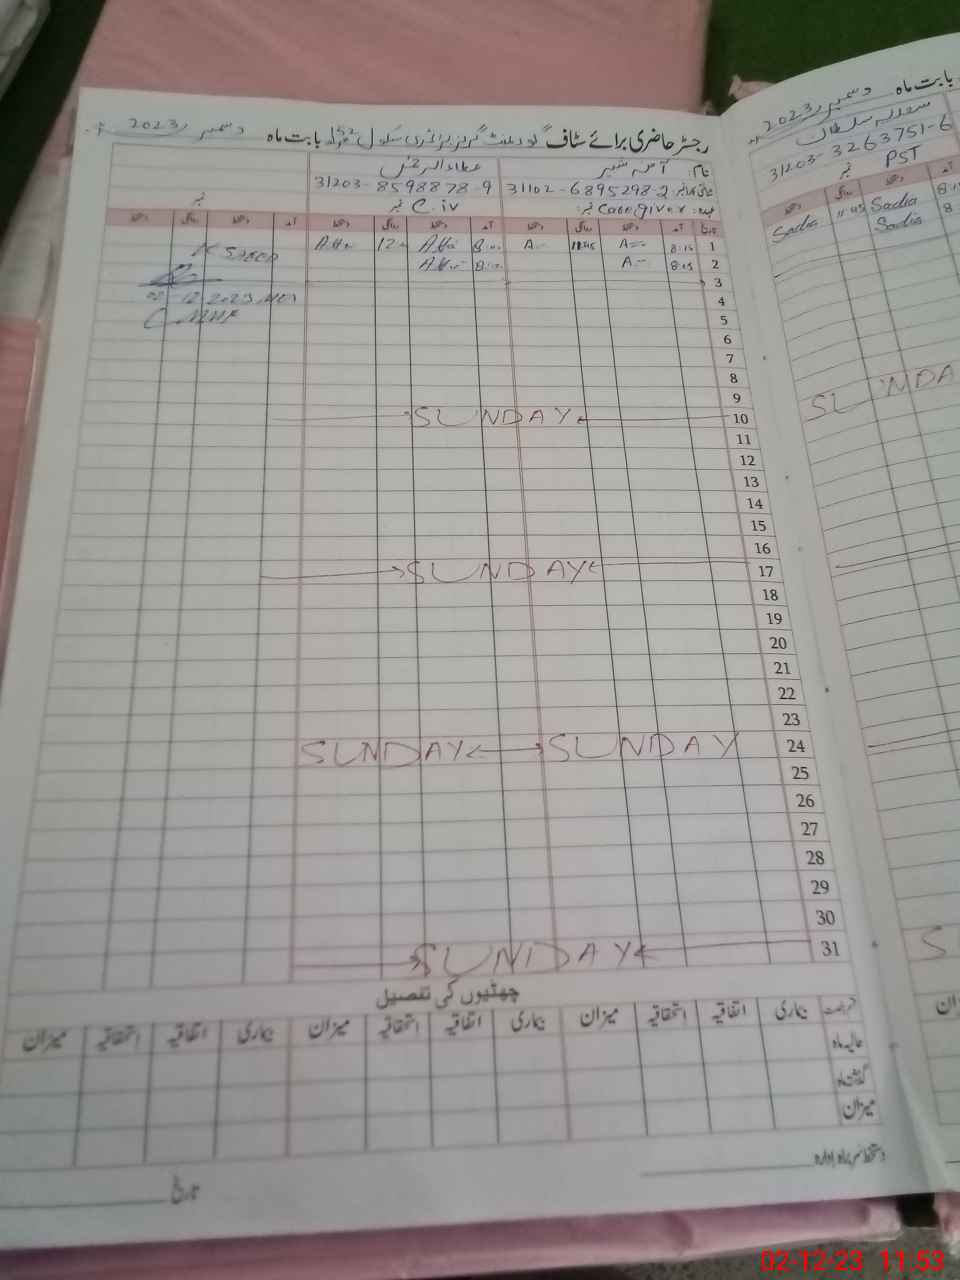 رجسٹر حاضری برائے سٹاف گورنمنٹ گرلز پرائمری سکول بابت ماہ دسمبر 2023ء
نام: آمنہ عطاء الرحمن
31102-6895298-2 31203-8598878-9
عہدہ: Caregiver نمبر C.iv نمبر نمبر
تاریخ آمد دستخط روانگی دستخط آمد دستخط روانگی دستخط آمد دستخط روانگی دستخط
1 8:15 A 11:45 A 8:00 Atta 12 Atta
2 8:15 A 8:00 Atta
3
02 12 2023
4
5
6
7
8
9
10 SUNDAY
11
12
13
14
15
16
17 SUNDAY
18
19
20
21
22
23
24 SUNDAY SUNDAY
25
26
27
28
29
30
31 SUNDAY
چھٹیوں کی تفصیل
رخصت بیماری اتفاقیہ استحقاقیہ میزان بیماری اتفاقیہ استحقاقیہ میزان بیماری اتفاقیہ استحقاقیہ میزان
حالیہ ماہ
گذشتہ ماہ
میزان
دستخط سربراہ ادارہ
تاریخ
بابت ماہ دسمبر 2023ء
سعدیہ سلطان
31203-3263751-6
PST نمبر
8:15 Sadia 11:45 Sadia
8 Sadia
SUNDA
S
02-12-23 11:53